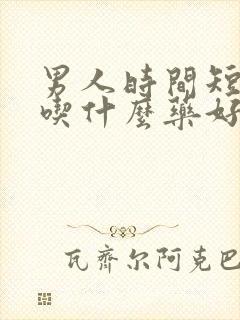 男人時間短
喫什麼藥好
瓦齊尔阿克巴